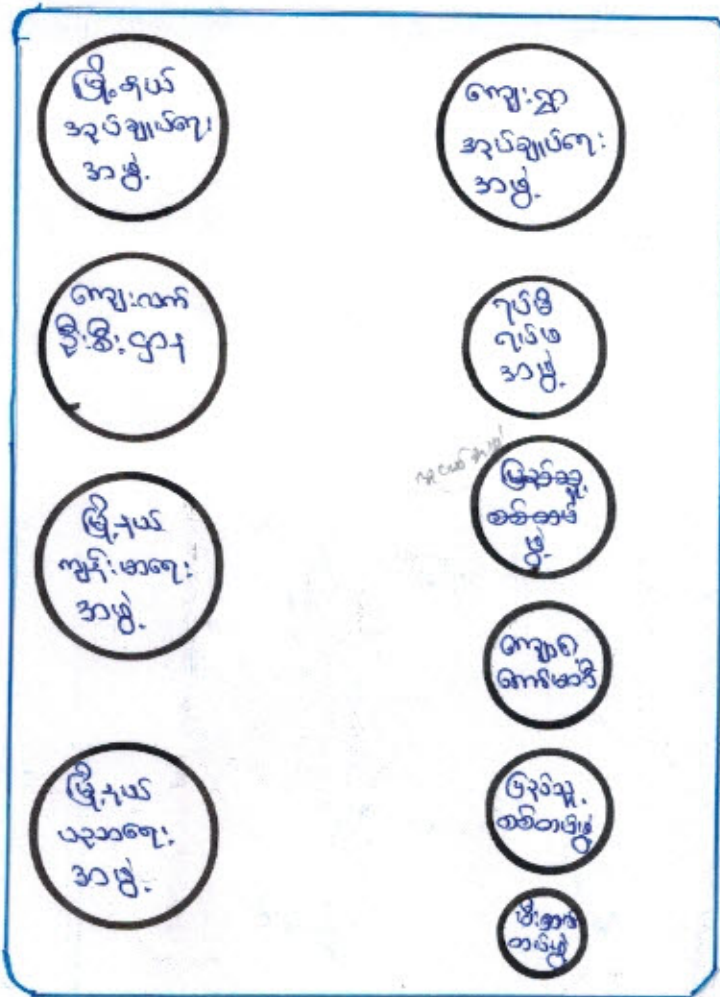 မြို့နယ်
အုပ်ချုပ်ရေး
အဖွဲ့
ကျေးလက်
ဦးစီးဌာန
မြို့နယ်
ကျန်းမာရေး
အဖွဲ့
မြို့နယ်
ပညာရေး
အဖွဲ့
ကျေးရွာ
အုပ်ချုပ်ရေး
အဖွဲ့
ရပ်မိ
ရပ်ဖ
အဖွဲ့
ပြည်သူ့
စစ်တမ်
ဖွဲ့
ကျောင်း
ကော်မတီ
ပြည်သူ့
စစ်တပ်ဖွဲ့
မီးသတ်
တပ်ဖွဲ့